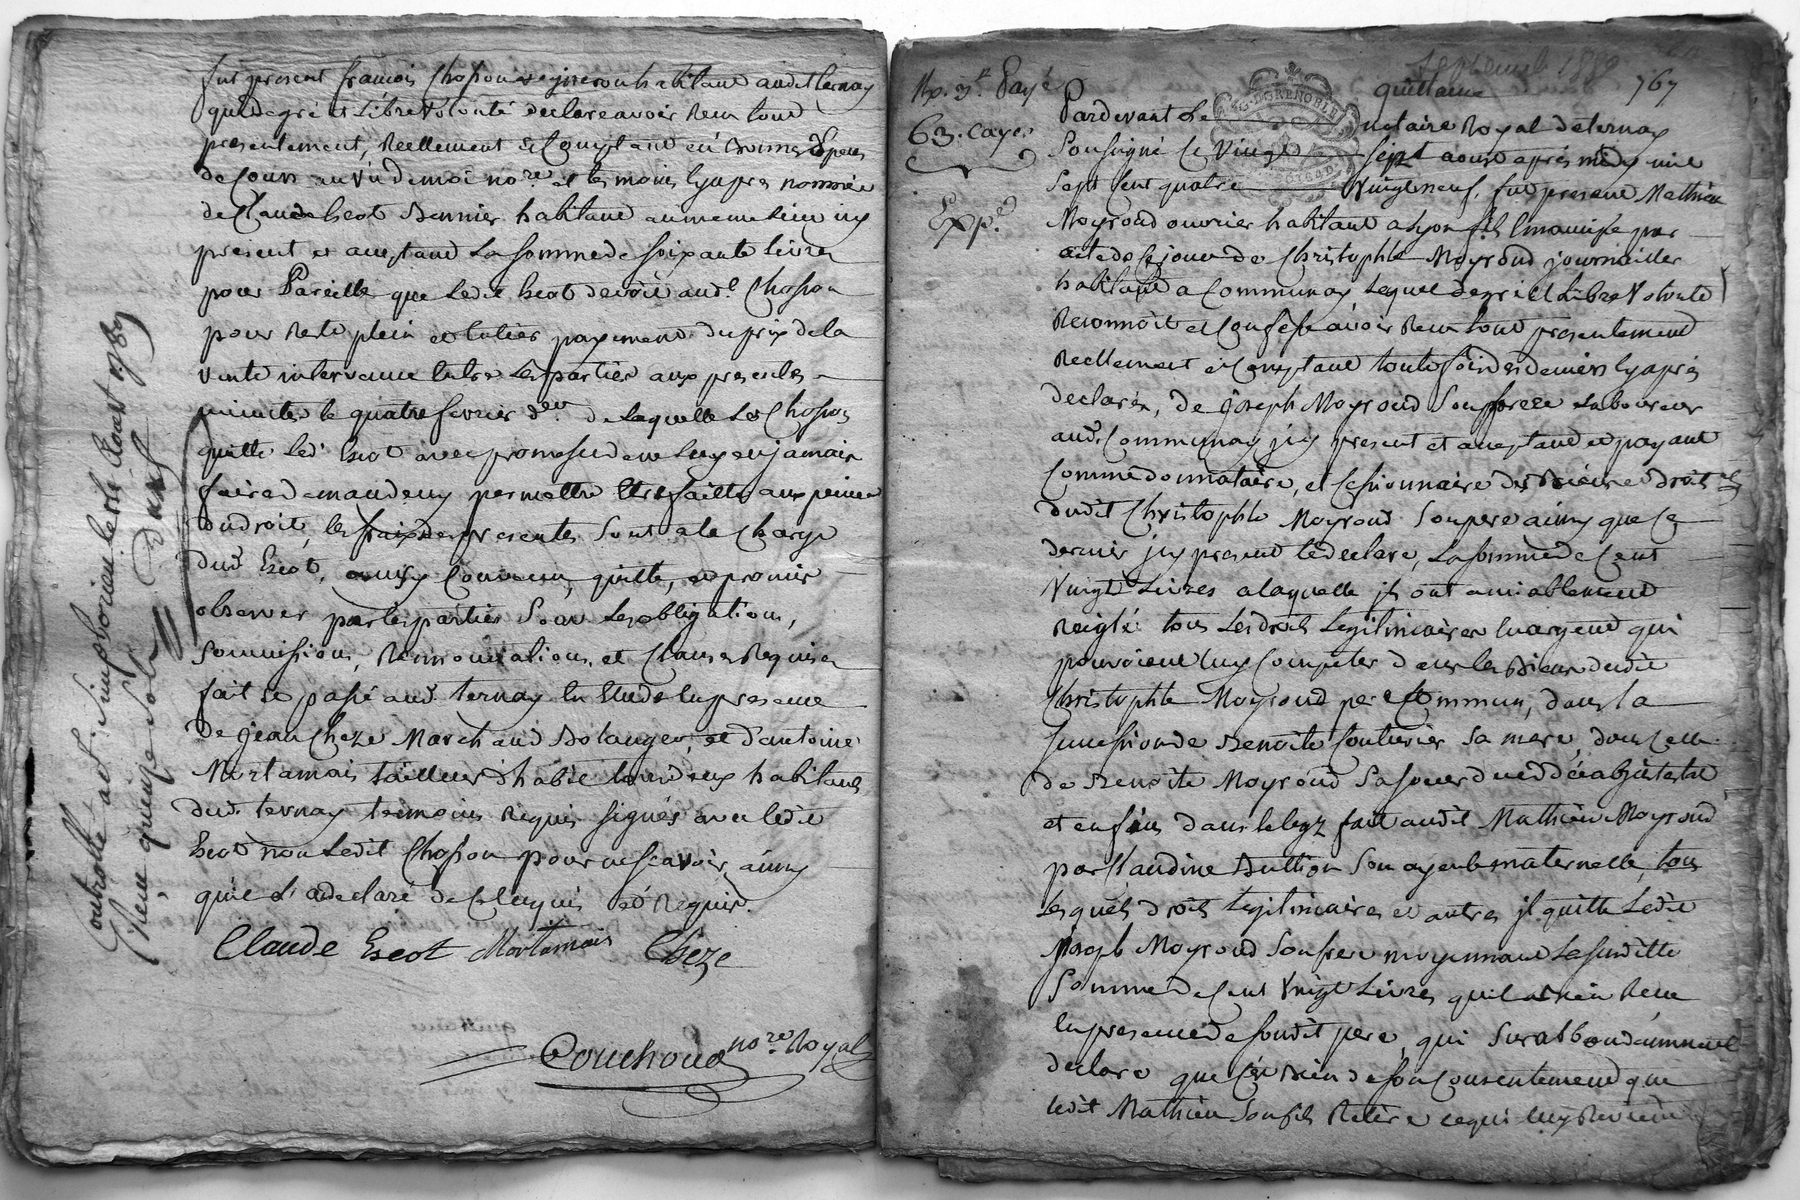 fut present francois Chosson vigneron habitant audit ternay
qui de gré et libre volonté declare avoir recu tout
presentement, reellement et comptant en bonnes especes
de cours au vû de moi no.re et temoins cy apres nommés
de Claude Escot dernier habitant au meme lieu icy
present et acceptant la somme de soixante livres
pour Pareille que ledit Escot devoit aud.t Chosson
pour reste plein et entier payement du prix de la
vente intervenue entre les parties aux presentes
minuttes le quatre fevrier d.er de laquelle led Chosson
quitte led.t Escot avec promesse de ne luy en jamais
faire demande ny permettre etre faitte aux peines
du droit, les frais des presentes sont a la charge
dud.t Escot, ainsy convenu, quitté, et promis
observer par les parties sous les obligations,
soumissions, renonciations, et clauses requises
fait et passé aud.t ternay en etude en presence
de Jean Cheze Marchand Bolanger, et d'antoine
Mortamais tailleur d'habit tous deux habitants
dud.t ternay temoins requis signés avec ledit
Escot non ledit Chosson pour ne scavoir, ainsy
qu'il l'a declaré de ce enquis et requis.
Claude Escot Mortamais Cheze
Couchoud no.re Royal
Controllé a s.t Simphorien le six aout 1789
Reçu quinze sols
767
quittance
63. Caye.
Exp.é
Pardevant le notaire Royal de ternay
Soussigné Ce vingt sept aout après midy mil
Sept Cent quatre vingt neuf, fut present Mathieu
Moyroud ouvrier habitant a Lyon fils emancipé par
acte de ce jour de Christophle Moyroud journailler
habitant a Communay, Lequel de gré et Libre Volonté
Reconnoit et Confesse avoir Recu tout presentement
Reellement et Comptant toutefois des deniers cy après
declarés, de Joseph Moyroud Son frere Laboureur
aud.t Communay icy present et acceptant et payant
Comme donnataire, et Cessionnaire des Biens et droits
dudit Christophle Moyroud Son pere ainsy que Ce
dernier icy present le declare, La somme de Cent
Vingt Livres a laquelle ils ont amiablement
Reiglé tous Les droits Legitimaires en argent qui
pouvoient luy Compéter dans les Biens dudit
Christophle Moyroud pere Commun, dans la
succession de Benoite Sa mere, dans Celle
de Benoite Moyroud Sa soeur
et enfin dans le legz fait audit Mathieu Moyroud
par Claudine Duttion Son ayeule maternelle, tous
Lesquels droits Legitimaires et autres il quitte Ledit
Joseph Moyroud Son frere moyennant La susditte
Somme de Cent Vingt Livres qu'il a Recu
en presence de Sondit pere, qui Surabbondamment
declare que C'est Bien de Son Consentement que
ledit Mathieu Son fils Retire ce qui luy Revient